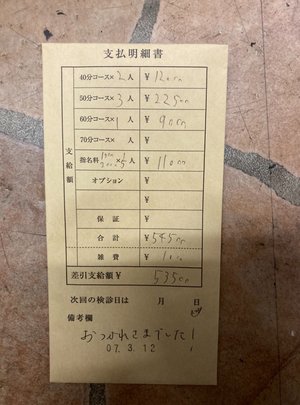 支払明細書
支給額
40分コース× 2 人 ¥ 12000
50分コース× 3 人 ¥ 22500
60分コース× 1 人 ¥ 9000
70分コース× 人 ¥
指名料 × 5 人 ¥ 11000
オプション ¥
¥
保証 ¥
合計 ¥ 54500
雑費 ¥ 1000
差引支給額 ¥ 53500
次回の検診日は 月 日
備考欄
おつかれさまでした!
07. 3. 12